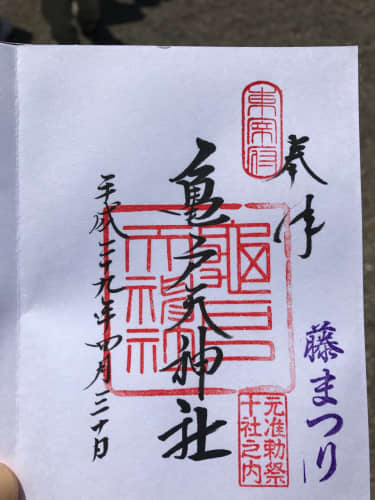 東宰府
奉拝
藤まつり
元准勅祭
十社之内
亀戸天神社
龜戸
天神社
平成二十九年四月二十日